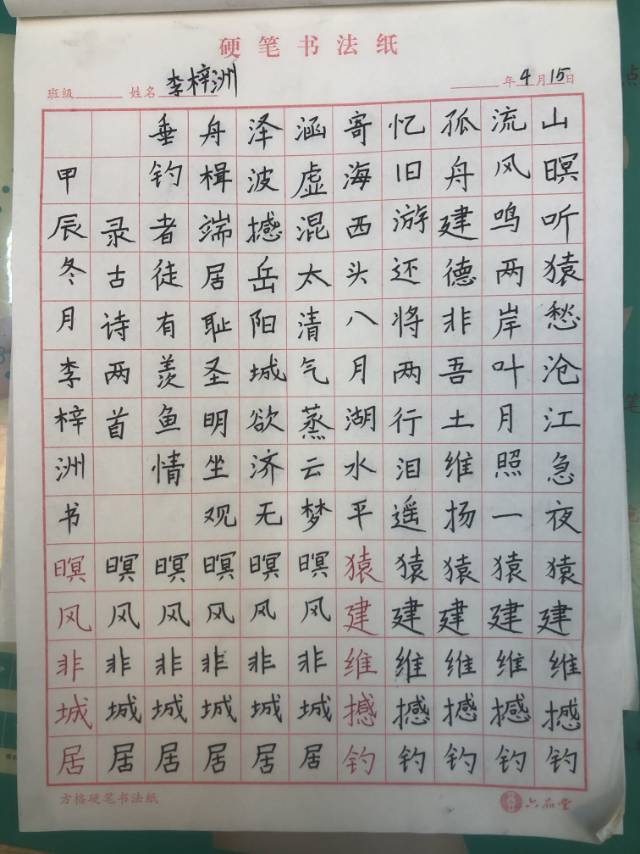 硬笔书法纸
班级 姓名 李梓洲 年 4 月 15 日
山暝听猿愁沧江急夜
流风鸣两岸叶月照一
孤舟建德非吾土维扬
忆旧游还将两行泪遥
寄海西头八月湖水平
涵虚混太清气蒸云梦
泽波撼岳阳城欲济无
舟楫端居耻圣明坐观
垂钓者徒有羡鱼情
录古诗两首
甲辰冬月李梓洲书
暝暝暝暝暝暝猿猿猿猿猿
风风风风风风建建建建建
非非非非非非维维维维维
城城城城城城撼撼撼撼撼
居居居居居居钓钓钓钓钓
方格硬笔书法纸
六品堂